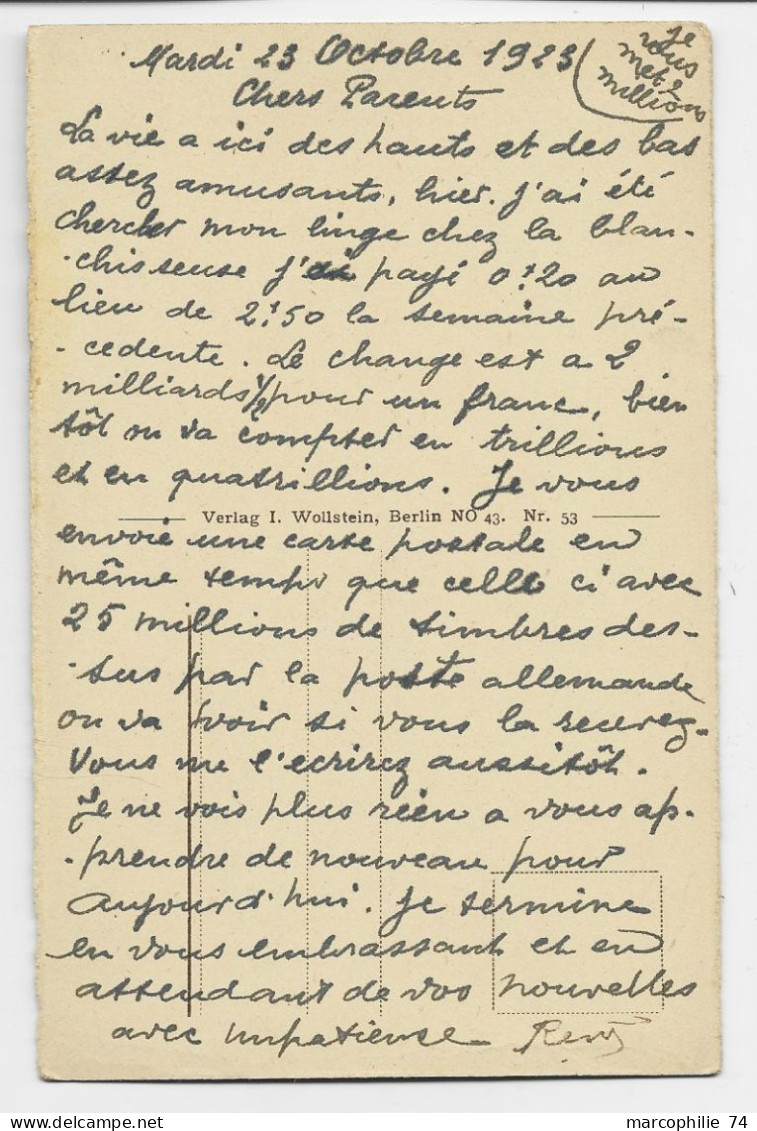 Mardi 23 Octobre 1923
Je
vous
met 2
millions
Chers Parents
La vie a ici des hauts et des bas
assez amusants, hier. j'ai été
chercher mon linge chez la blan-
-chisseuse j'ai payé 0f20 au
lieu de 2f50 la semaine pré-
-cedente. Le change est a 2
milliards 1/2 pour un franc, bien
tôt on va compter en trillions
et en quatrillions. Je vous
Verlag I. Wollstein, Berlin NO 43. Nr. 53
envoie une carte postale en
même temps que celle ci avec
25 millions de timbres des-
-sus par la poste allemande
on va voir si vous la recevez.
Vous me l'ecrirez aussitôt.
Je ne vois plus rien a vous ap-
-prendre de nouveau pour
aujourd'hui. Je termine
en vous embrassant et en
attendant de vos nouvelles
avec impatiense René
marcophilie 74